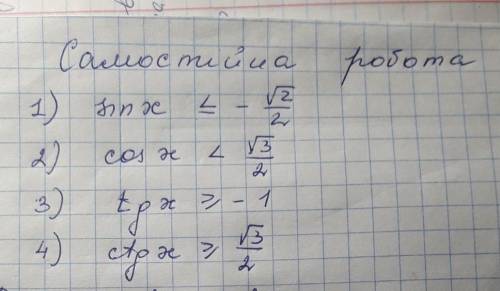 Самостійна робота
1) sin x ≤ - √2/2
2) cos x < √3/2
3) tg x ≥ - 1
4) ctg x ≥ √3/2